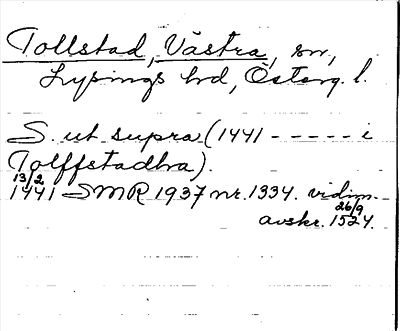 Tollstad, Västra, sn,
Lysings hd, Österg. l.
S. ut supra (1441 - - - - - i
Tolffstadhra).
13/2
1441 SMR 1937 nr. 1334. vidim.
26/9
avskr. 1524.